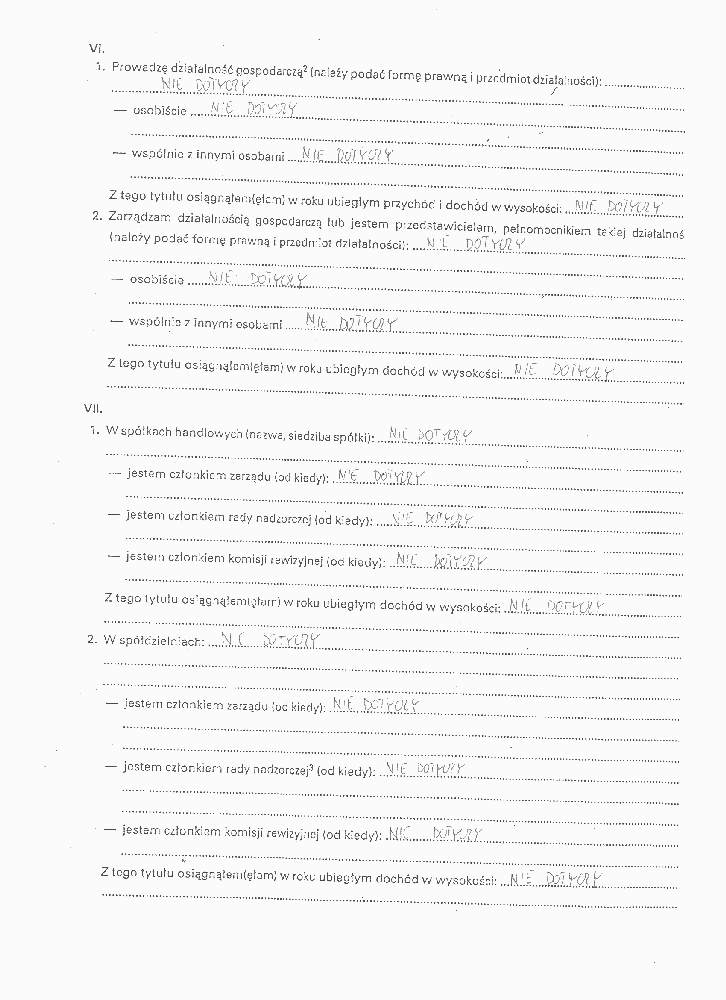 VI.
1. Prowadzę działalność gospodarczą² (należy podać formę prawną i przedmiot działalności): ....................
NIE DOTYCZY
— osobiście ..... NIE DOTYCZY
— wspólnie z innymi osobami .... NIE DOTYCZY
Z tego tytułu osiągnąłem(ęłam) w roku ubiegłym przychód i dochód w wysokości: .. NIE DOTYCZY
2. Zarządzam działalnością gospodarczą lub jestem przedstawicielem, pełnomocnikiem takiej działalnoś
(należy podać formę prawną i przedmiot działalności): .... NIE DOTYCZY
— osobiście ...... NIE DOTYCZY
— wspólnie z innymi osobami ..... NIE DOTYCZY
Z tego tytułu osiągnąłem(ęłam) w roku ubiegłym dochód w wysokości: .. NIE DOTYCZY
VII.
1. W spółkach handlowych (nazwa, siedziba spółki): .... NIE DOTYCZY
— jestem członkiem zarządu (od kiedy): .. NIE DOTYCZY
— jestem członkiem rady nadzorczej (od kiedy): ..... NIE DOTYCZY
— jestem członkiem komisji rewizyjnej (od kiedy): .. NIE DOTYCZY
Z tego tytułu osiągnąłem(ęłam) w roku ubiegłym dochód w wysokości: .. NIE DOTYCZY
2. W spółdzielniach: .... NIE DOTYCZY
— jestem członkiem zarządu (od kiedy): .. NIE DOTYCZY
— jestem członkiem rady nadzorczej³ (od kiedy): .. NIE DOTYCZY
— jestem członkiem komisji rewizyjnej (od kiedy): .. NIE DOTYCZY
Z tego tytułu osiągnąłem(ęłam) w roku ubiegłym dochód w wysokości: ... NIE DOTYCZY